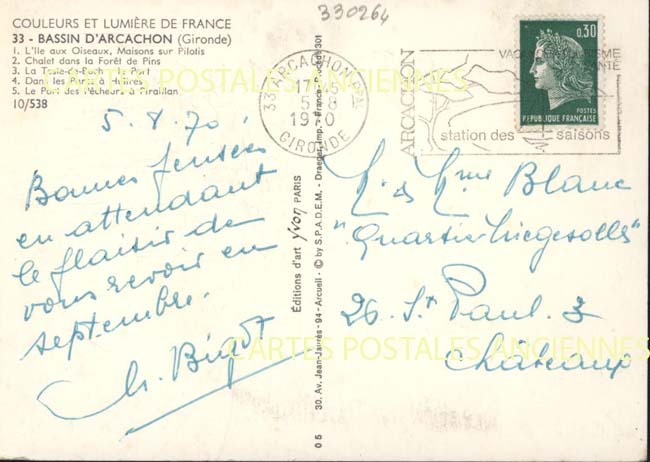 COULEURS ET LUMIÈRE DE FRANCE
33 - BASSIN D'ARCACHON (Gironde)
1. L'Ile aux Oiseaux, Maisons sur Pilotis
2. Chalet dans la Forêt de Pins
3. La Teste-de-Buch : le Port
4. Dans les Parcs à Huîtres
5. Le Port des Pêcheurs à Piraillan
10/538
5.8.70
Bonnes pensées
en attendant
le plaisir de
vous revoir en
septembre.
Ch. Bigot
Editions d'art Yvon PARIS
30. Av. Jean-Jaurès - 94 - Arcueil - © by S.P.A.D.E.M. - Draeger, Imp. - France - Procédé 301
05
330264
33 ARCACHON PAL
17H45
5-8
1970
GIRONDE
ARCACHON
station des saisons
0,30
POSTES
REPUBLIQUE FRANÇAISE
M. & Mme Blanc
"Quartier
26. St Paul. 3
CARTES POSTALES ANCIENNES
CARTES POSTALES ANCIENNES